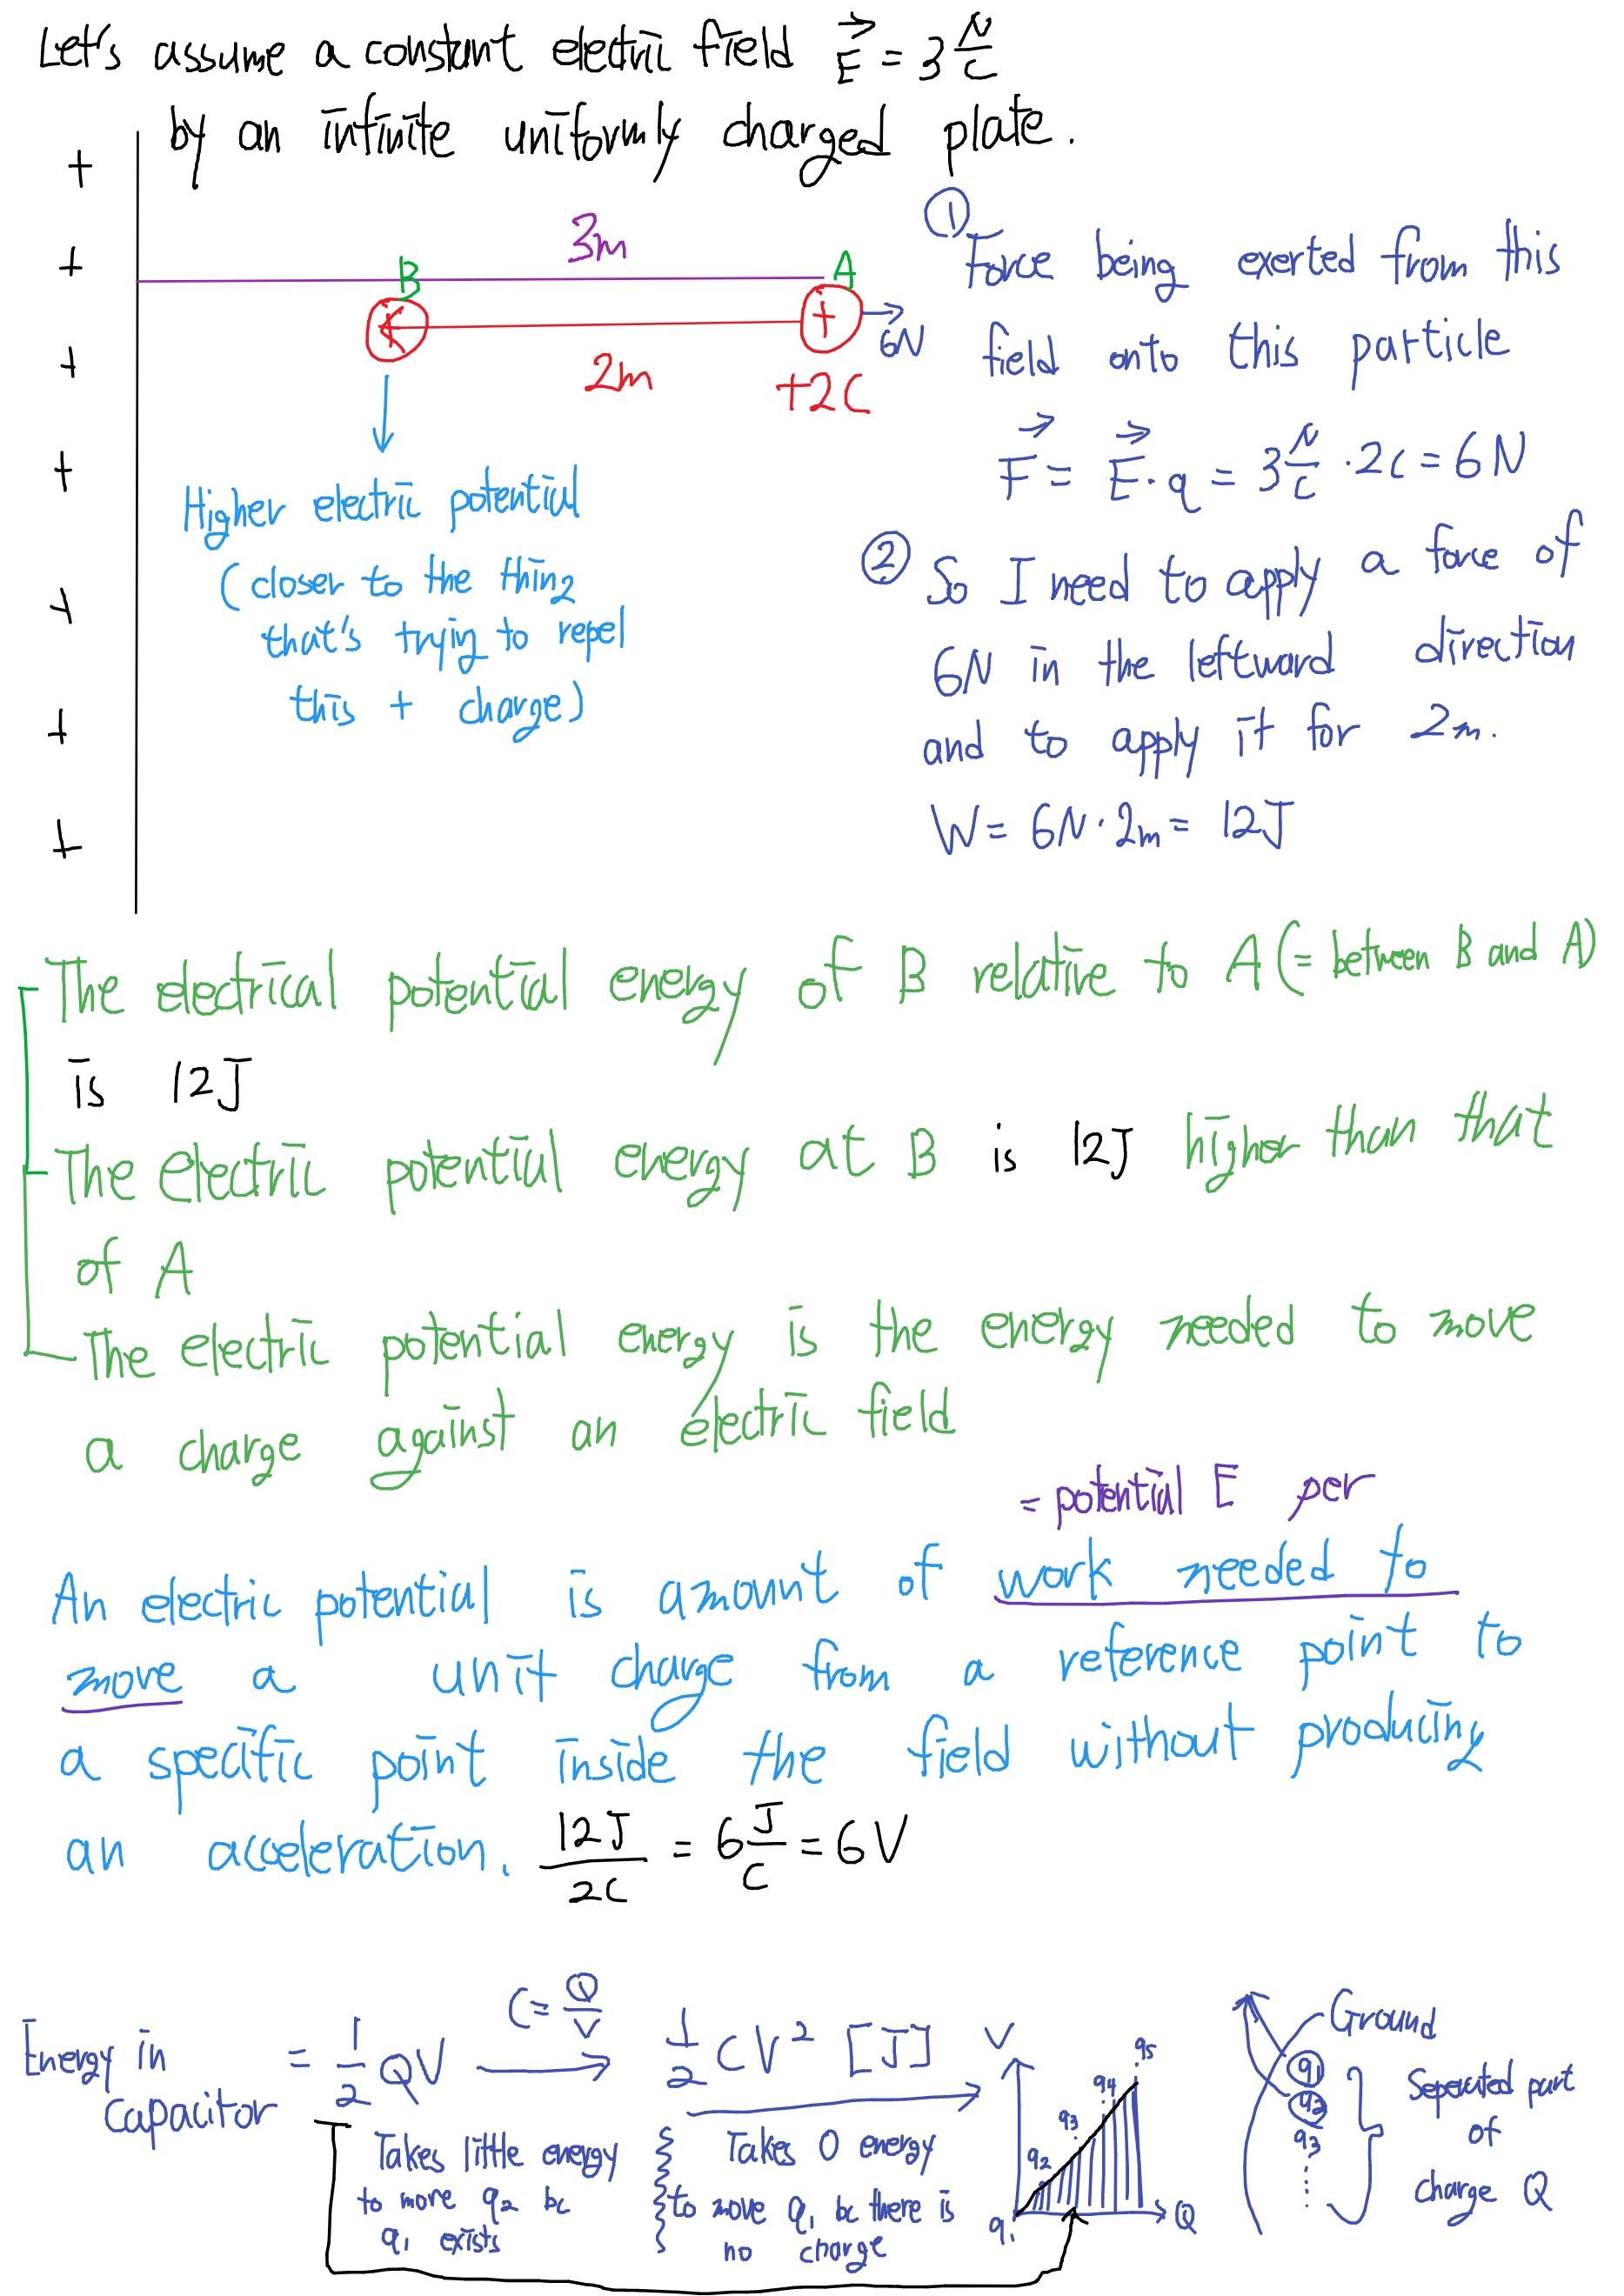 Let's assume a constant electric field E⃗ = 3 N/C
by an infinite uniformly charged plate.
+
+
+
+
+
+
+
3m
B
A
+
6N
2m
+2C
Higher electric potential
(closer to the thing
that's trying to repel
this + charge)
① Force being exerted from this
field onto this particle
F⃗ = E⃗ · q = 3 N/C · 2C = 6N
② So I need to apply a force of
6N in the leftward direction
and to apply it for 2m.
W = 6N · 2m = 12J
The electrical potential energy of B relative to A (= between B and A)
is 12J
The electric potential energy at B is 12J higher than that
of A
The electric potential energy is the energy needed to move
a charge against an electric field
= potential E per
An electric potential is amount of work needed to
move a unit charge from a reference point to
a specific point inside the field without producing
an acceleration. 12J/2C = 6 J/C = 6V
Energy in
capacitor = 1/2 QV
C = Q/V
1/2 CV² [J]
Takes little energy
to move q₂ bc
q₁ exists
Takes 0 energy
to move q₁ bc there is
no charge
V
q₁
q₂
q₃
q₄
q₅
Q
Ground
q₁
q₂
q₃
⋮
Seperated part
of
charge Q